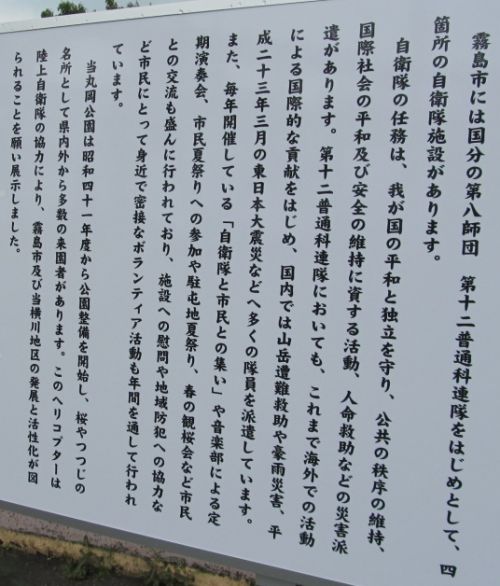 霧島市には国分の第八師団　第十二普通科連隊をはじめとして、四
箇所の自衛隊施設があります。
自衛隊の任務は、我が国の平和と独立を守り、公共の秩序の維持、
国際社会の平和及び安全の維持に資する活動、人命救助などの災害派
遣があります。第十二普通科連隊においても、これまで海外での活動
による国際的な貢献をはじめ、国内では山岳遭難救助や豪雨災害、平
成二十三年三月の東日本大震災などへ多くの隊員を派遣しています。
また、毎年開催している「自衛隊と市民との集い」や音楽部による定
期演奏会、市民夏祭りへの参加や駐屯地夏祭り、春の観桜会など市民
との交流も盛んに行われており、施設への慰問や地域防犯への協力な
ど市民にとって身近で密接なボランティア活動も年間を通して行われ
ています。
当丸岡公園は昭和四十一年度から公園整備を開始し、桜やつつじの
名所として県内外から多数の来園者があります。このヘリコプターは
陸上自衛隊の協力により、霧島市及び当横川地区の発展と活性化が図
られることを願い展示しました。